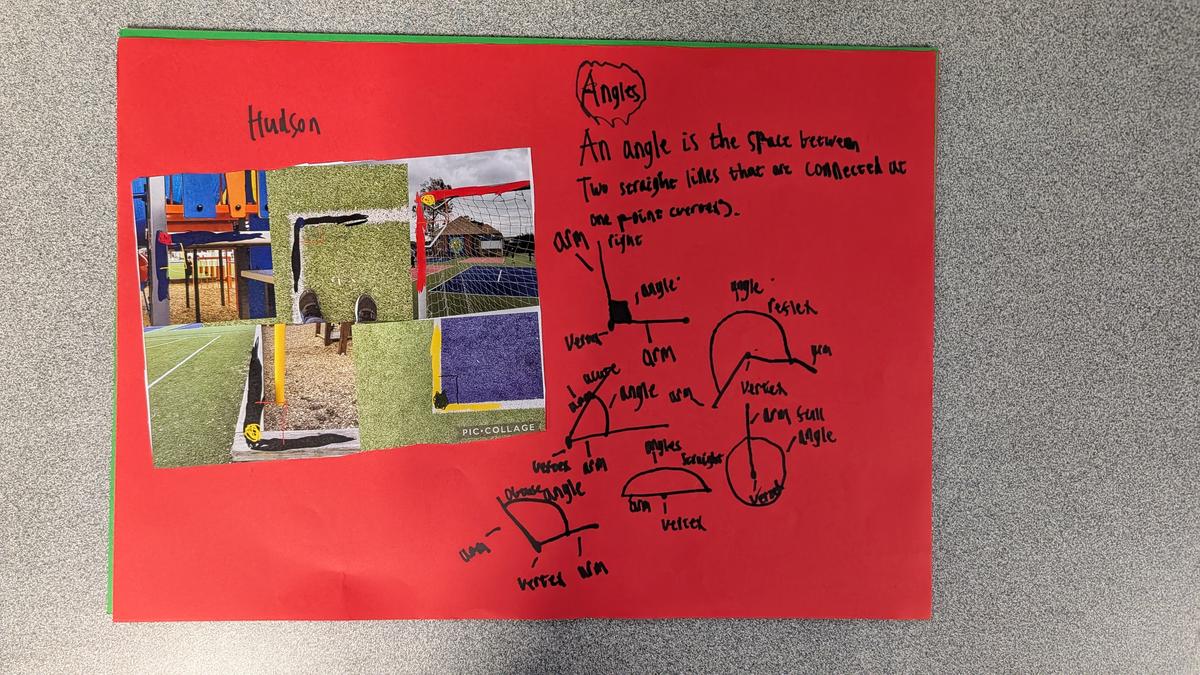 Hudson
Angles
An angle is the space between
Two straight lines that are connected at
one point
arm
right
angle
vertex
arm
angle
reflex
arm
vertex
acute
arm
angle
vertex
arm
arm full
angle
vertex
angles
straight
arm
vertex
obtuse angle
arm
vertex
arm
PIC•COLLAGE